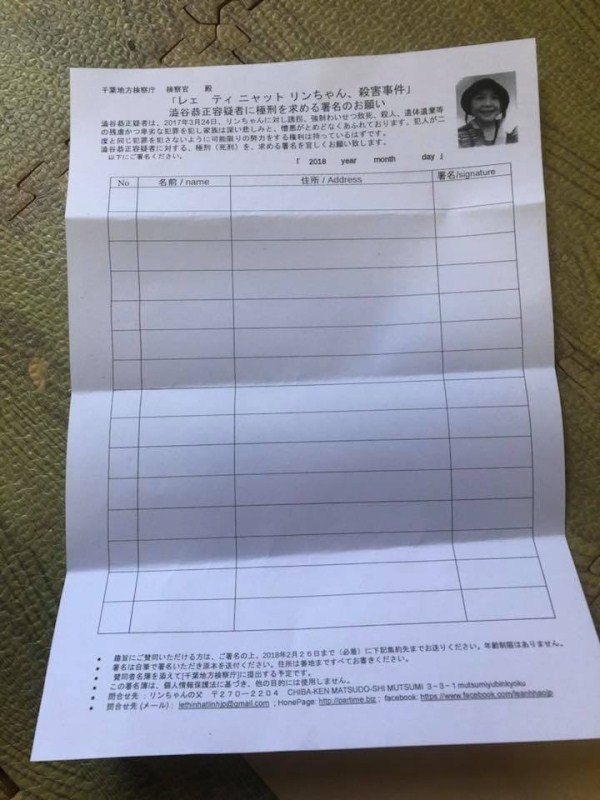 千葉地方検察庁 検察官 殿
「レェ ティ ニャット リンちゃん、殺害事件」
澁谷恭正容疑者に極刑を求める署名のお願い
澁谷恭正容疑者は、2017年3月24日、リンちゃんに対し誘拐、強制わいせつ致死、殺人、遺体遺棄等
の残虐かつ卑劣な犯罪を犯し家族は深い悲しみと、憎悪がとめどなくあふれております。犯人が二
度と同じ犯罪を犯さないように可能限りの努力をする権利は持っているはずです。
澁谷恭正容疑者に対する、極刑（死刑）を、求める署名を宜しくお願い致します。
以下にご署名ください。
「 2018 year month day 」
No 名前 / name 住所 / Address 署名/signature
• 趣旨にご賛同いただける方は、ご署名の上、2018年2月26日まで（必着）に下記集約先までお送りください。年齢制限はありません。
• 署名は自筆で署名いただき原本を送付ください。住所は番地まですべてお書きください。
• 賛同者名簿を添えて[千葉地方検察庁]に提出する予定です。
• この署名簿は、個人情報保護法に基づき、他の目的には使用しません。
• 問合せ先 : リンちゃんの父 〒270－2204 CHIBA-KEN MATSUDO-SHI MUTSUMI 3－3－1 mutsumiyubinkyoku
• 問合せ先 (メール) : lethinhatlinhjp@gmail.com ; HonePage: http://partime.biz ; facebook: https://www.facebook.com/leanhhaojp